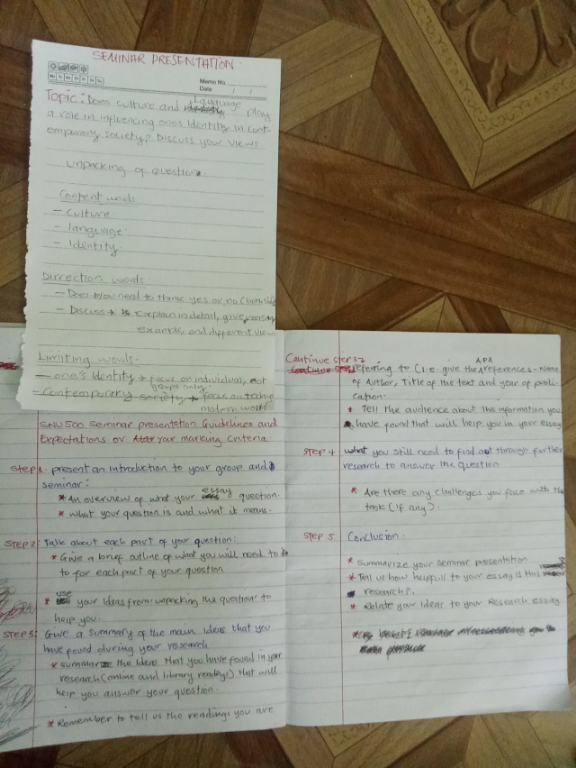 SEMINAR PRESENTATION.
Memo No.
Date / /
Topic: Does culture and language play
a role in influencing ones Identity in cont
emporary society? Discuss your views
unpacking of question.
Content words
- Culture
- language
- Identity
Direction words
- Does → you need to think yes or no
- Discuss → explain in detail, give
example, and different views
Limiting words
- one's Identity → focus on individual, not
groups only
- Contemporary society → focus on today
modern world
SNU 500 Seminar presentation Guidelines and
Expectations or marking criteria
Step 1: present an introduction to your group and
seminar:
* An overview of what your essay question.
* what your question is and what it means.
Step 2: Talk about each part of your question:
* Give a brief outline of what you will need to do
to for each part of your question
* use your ideas from unpacking the question to
help you.
Step 3: Give a summary of the main ideas that you
have found during your research
* summarize the ideas that you have found in your
research (online and library readings) that will
help you answer your question.
* Remember to tell us the readings you are
Continue step 3
referring to (i.e. give the APA references - Name
of Author, Title of the text and year of publi-
cation.
* Tell the audience about the information you
have found that will help you in your essay
STEP 4 what you still need to find out through further
research to answer the question
* Are there any challenges you face with the
task (if any).
STEP 5 Conclusion:
* Summarize your seminar presentation
* Tell us how helpful to your essay is this
research?
* Relate your ideas to your Research essay